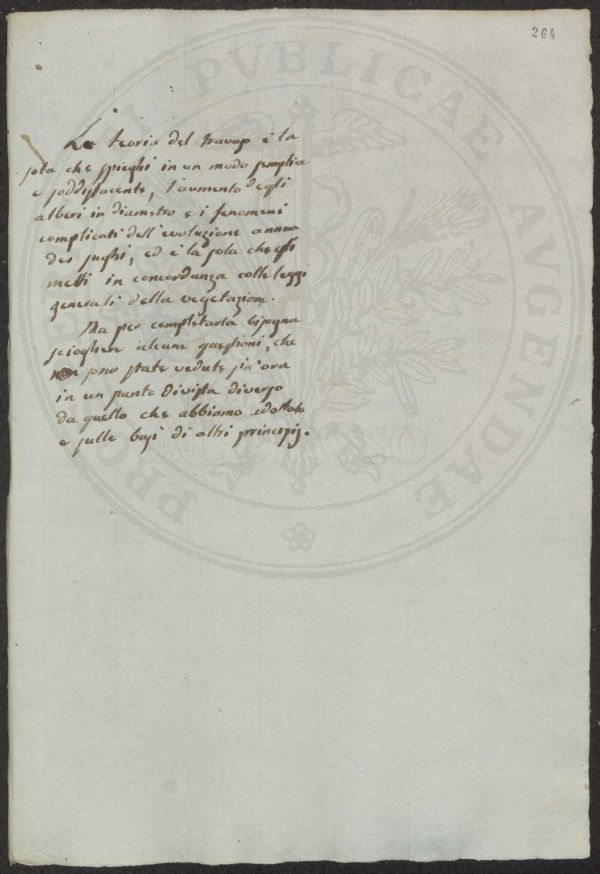 264
La teoria del travaso è la
sola che spieghi in un modo semplice
e soddisfacente, l'aumento degli
alberi in diametro e i fenomeni
complicati dell'evoluzione annua
dei sughi, ed è la sola che gli
metti in concordanza colle leggi
generali della vegetazione.
Ma per completarla bisogna
sciogliere alcune questioni, che
non sono state vedute sin'ora
in un punto di vista diverso
da quello che abbiamo adottato
e sulle basi di altri principij.
PVBLICAE AVGENDAE